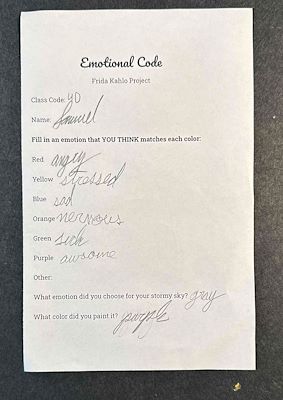 Emotional Code
Frida Kahlo Project
Class Code: 4D
Name: Samuel
Fill in an emotion that YOU THINK matches each color:
Red angry
Yellow stressed
Blue sad
Orange nervous
Green sick
Purple awsome
Other:
What emotion did you choose for your stormy sky? gray
What color did you paint it? purple